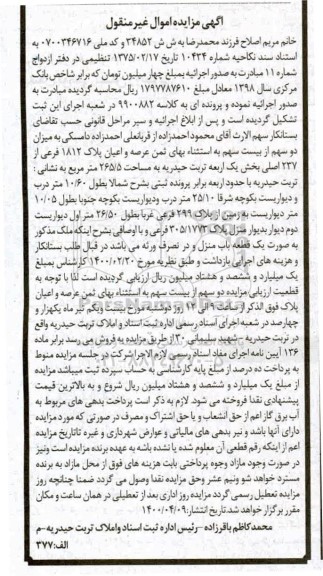 آگهی مزایده اموال غیرمنقول
خانم مریم اصلاح فرزند محمدرضا به ش ش ۳۴۸۵۲ و کد ملی ۰۷۰۰۳۴۶۷۱۶ به
استناد سند نکاحیه شماره ۱۰۴۳۴ تاریخ ۱۳۷۵/۰۲/۱۷ تنظیمی در دفتر ازدواج
شماره ۱۱ مبادرت به صدور اجرائیه بمبلغ چهار میلیون تومان که برابر شاخص بانک
مرکزی سال ۱۳۹۸ معادل مبلغ ۱۷۹۷۷۸۷۶۱۰ ریال محاسبه گردیده مبادرت به
صدور اجرائیه نموده و پرونده ای به کلاسه ۹۹۰۰۸۸۲ در شعبه اجرای این ثبت
تشکیل گردیده است و پس از ابلاغ اجرائیه و سیر مراحل قانونی حسب تقاضای
بستانکار سهم الارث آقای محمود احمدزاده از قربانعلی احمدزاده دامسکی به میزان
دو سهم از بیست سهم به استثناء بهای ثمن عرصه و اعیان پلاک ۱۸۱۲ فرعی از
۲۳۷ اصلی بخش یک اربعه تربت حیدریه به مساحت ۲۶۵/۵ متر مربع به نشانی :
تربت حیدریه با حدود اربعه برابر پرونده ثبتی بشرح شمالا بطول ۱۰/۶۰ متر درب
و دیواریست بکوچه شرقا ۲۵/۱۰ متر درب ودیواریست بکوچه جنوبا بطول ۱۰/۰۵
متر دیواریست به زمین از پلاک ۲۹۹ فرعی غربا بطول ۲۶/۵۰ متر اول دیواریست
دوم دیوار بدیوار منزل پلاک ۳۰۵/۱۱۷۳ فرعی و با اوصافی بشرح اینکه ملک مذکور
به صورت یک قطعه باب منزل و در تصرف ورثه می باشد در قبال طلب بستانکار
و هزینه های اجرایی بازداشت و طبق نظریه مورخ ۱۴۰۰/۰۲/۲۰ کارشناس بمبلغ
یک میلیارد و ششصد و هشتاد میلیون ریال ارزیابی گردیده است لذا با توجه به
قطعیت ارزیابی مزایده دو سهم از بیست سهم به استثناء بهای ثمن عرصه و اعیان
پلاک فوق الذکر از ساعت ۹ الی ۱۲ روز دوشنبه مورخ بیست ویکم تیر ماه یکهزار و
چهارصد در شعبه اجرای اسناد رسمی اداره ثبت اسناد و املاک تربت حیدریه واقع
در تربت حیدریه - شهید سلیمانی ۳۰ از طریق مزایده به فروش می رسد برابر ماده
۱۳۶ آیین نامه اجرای مفاد اسناد رسمی لازم الاجرا شرکت در جلسه مزایده منوط
به پرداخت ده درصد از مبلغ پایه کارشناسی به حساب سپرده ثبت میباشد مزایده
از مبلغ یک میلیارد و ششصد و هشتاد میلیون ریال شروع و به بالاترین قیمت
پیشنهادی نقدا فروخته می شود. لازم به ذکر است پرداخت بدهی های مربوط به
آب برق گاز اعم از حق انشعاب و یا حق اشتراک و مصرف در صورتی که مورد مزایده
دارای آنها باشد و نیز بدهی های مالیاتی و عوارض شهرداری و غیره تاتاریخ مزایده
اعم از اینکه رقم قطعی آن معلوم شده یا نشده باشه به عهده برنده مزایده است ونیز
در صورت وجود مازاد وجوه پرداختی بابت هزینه های فوق از محل مازاد به برنده
مسترد خواهد شو ونیم عشر وحق مزایده نقدا وصول می گردد ضمنا چنانچه روز
مزایده تعطیل رسمی گردد مزایده روز اداری بعد از تعطیلی در همان ساعت و مکان
مقرر برگزار خواهد شد.تاریخ انتشار: ۱۴۰۰/۰۴/۰۹
محمدکاظم باقرزاده –رئیس اداره ثبت اسناد واملاک تربت حیدریه-م
الف:۳۷۷